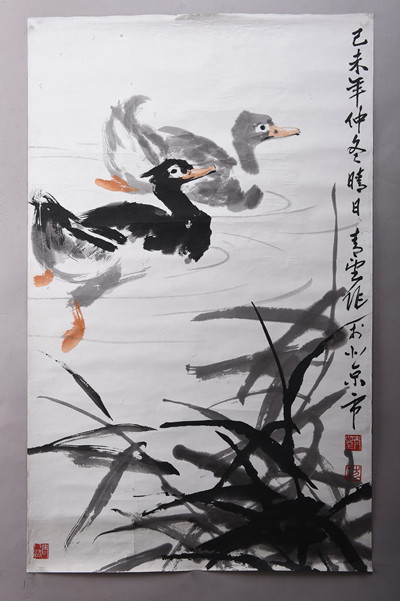 己未年仲冬晴日青云作于北京市